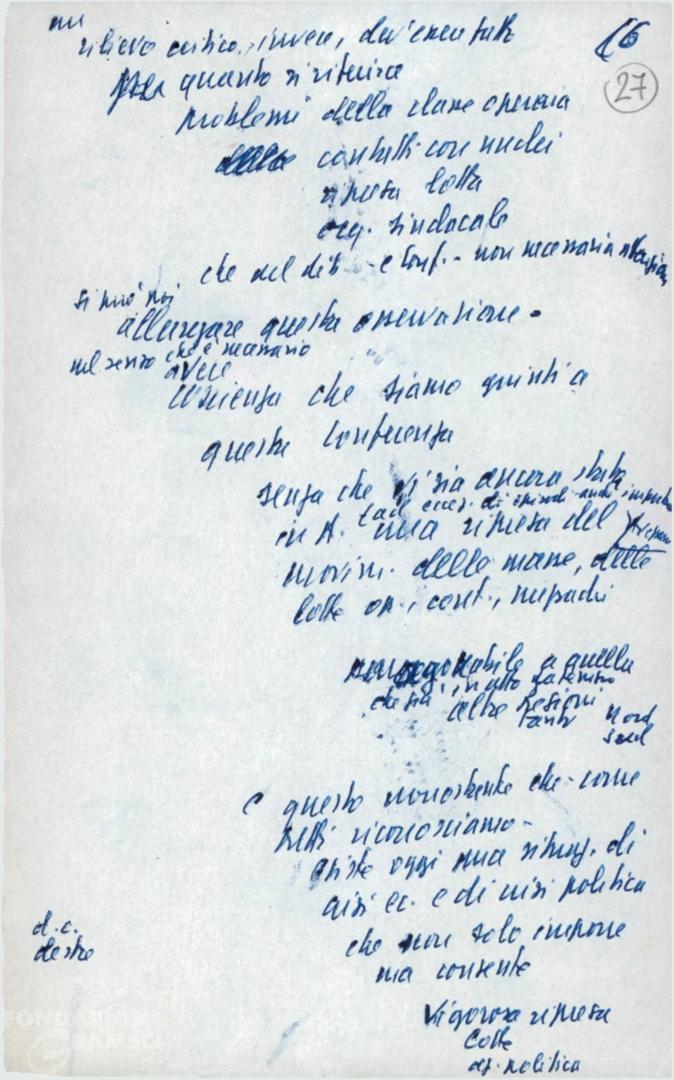 un
rilievo critico, invece, dev'essere fatto
16
27
per quanto si riferisce
problemi della classe operaia
contatti con nuclei
ripresa lotta
org. sindacale
che nel dib. e conf. - non necessaria attenzione
si può poi
allargare questa osservazione.
nel senso che è necessario
avere
coscienza che siamo giunti a
questa conferenza
senza che vi sia ancora stata
in A. una ripresa del
movim. delle masse, delle
lotte op., cont.,
paragonabile a quella
che sia in atto
altre regioni
tanto nord
sud
e questo nonostante che - come
tutti riconosciamo -
esiste oggi una situaz. di
crisi ec. e di crisi politica
d.c.
destre
che non solo impone
ma consente
vigorosa ripresa
lotte
az. politica
FONDAZIONE
GRAMSCI